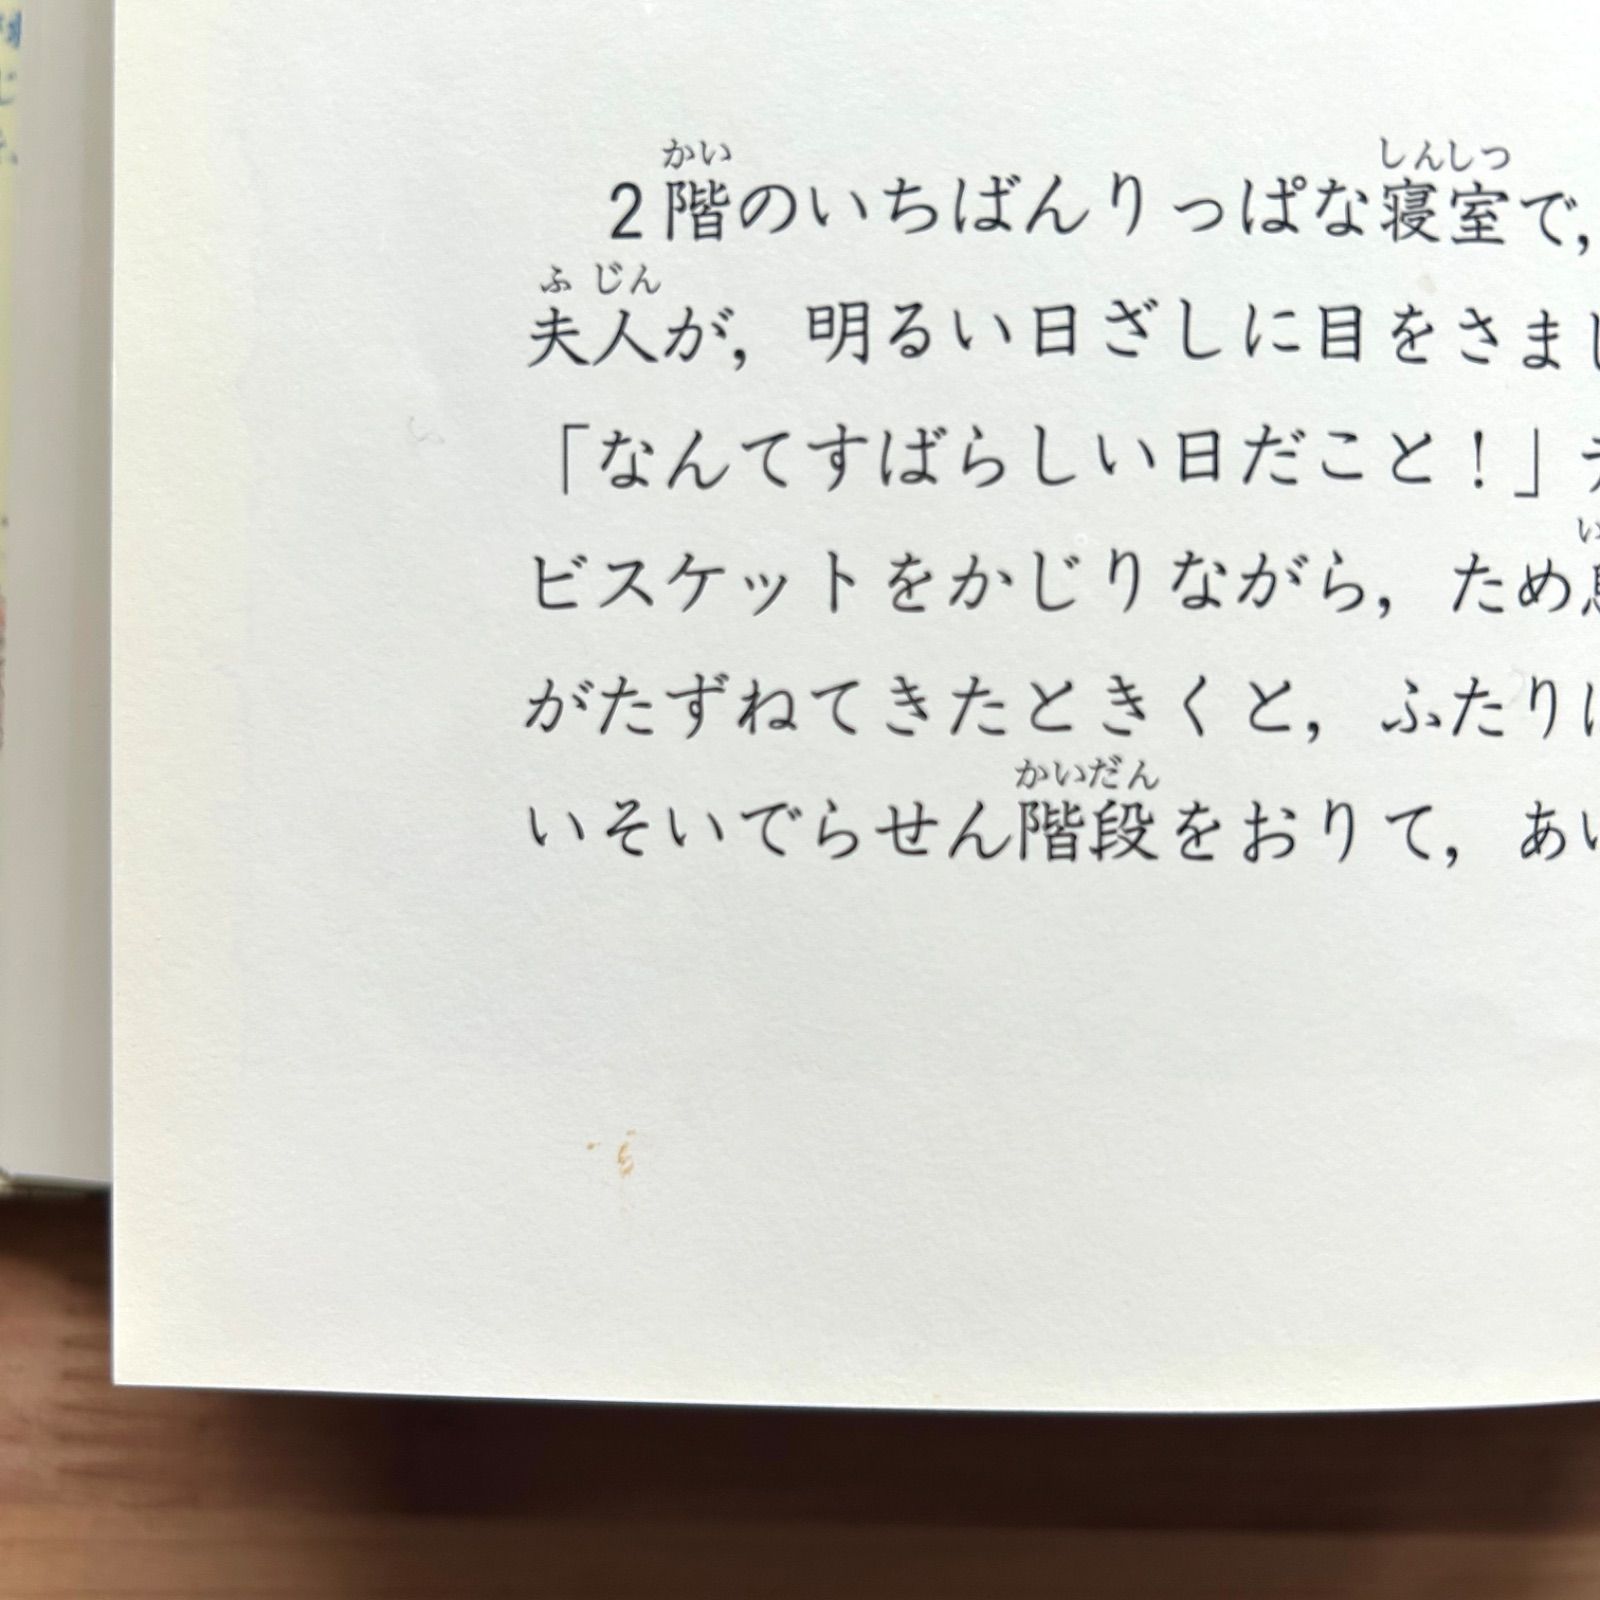 かい しんしつ
2階のいちばんりっぱな寝室で，
ふじん
夫人が，明るい日ざしに目をさまし
「なんてすばらしい日だこと！」
ビスケットをかじりながら，ため
がたずねてきたときくと，ふたり
かいだん
いそいでらせん階段をおりて，あ